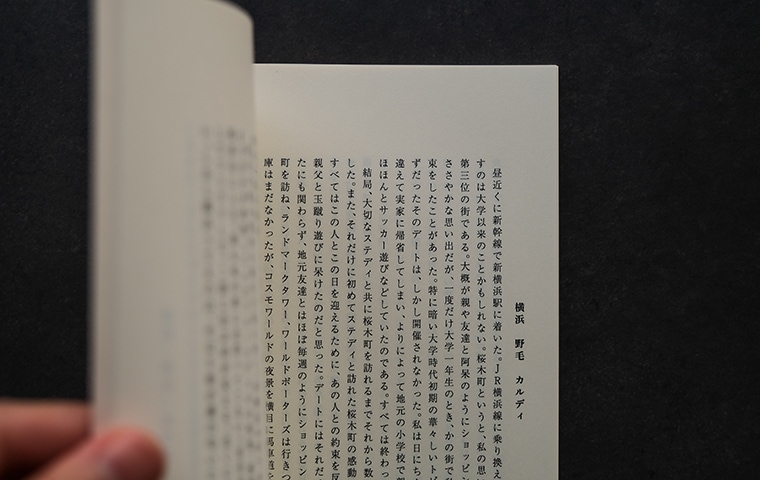 横浜 野毛 カルディ
昼近くに新幹線で新横浜駅に着いた。JR横浜線に乗り換え
すのは大学以来のことかもしれない。桜木町というと、私の思い
第三位の街である。大概が親や友達と阿呆のようにショッピン
ささやかな思い出だが、一度だけ大学一年生のとき、かの街で私
束をしたことがあった。特に暗い大学時代初期の華々しいトピ
ずだったそのデートは、しかし開催されなかった。私は日にちを
違えて実家に帰省してしまい、よりによって地元の小学校で親
ほほんとサッカー遊びなどしていたのである。すべては終わっ
結局、大切なステディと共に桜木町を訪れるまでそれから数
した。また、それだけに初めてステディと訪れた桜木町の感動
すべてはこの人とこの日を迎えるために、あの人との約束を反
親父と玉蹴り遊びに呆けたのだと思った。デートにはそれだ
たにも関わらず、地元友達とはほぼ毎週のようにショッピン
町を訪ね、ランドマークタワー、ワールドポーターズは行きつ
庫はまだなかったが、コスモワールドの夜景を横目に馬車道を